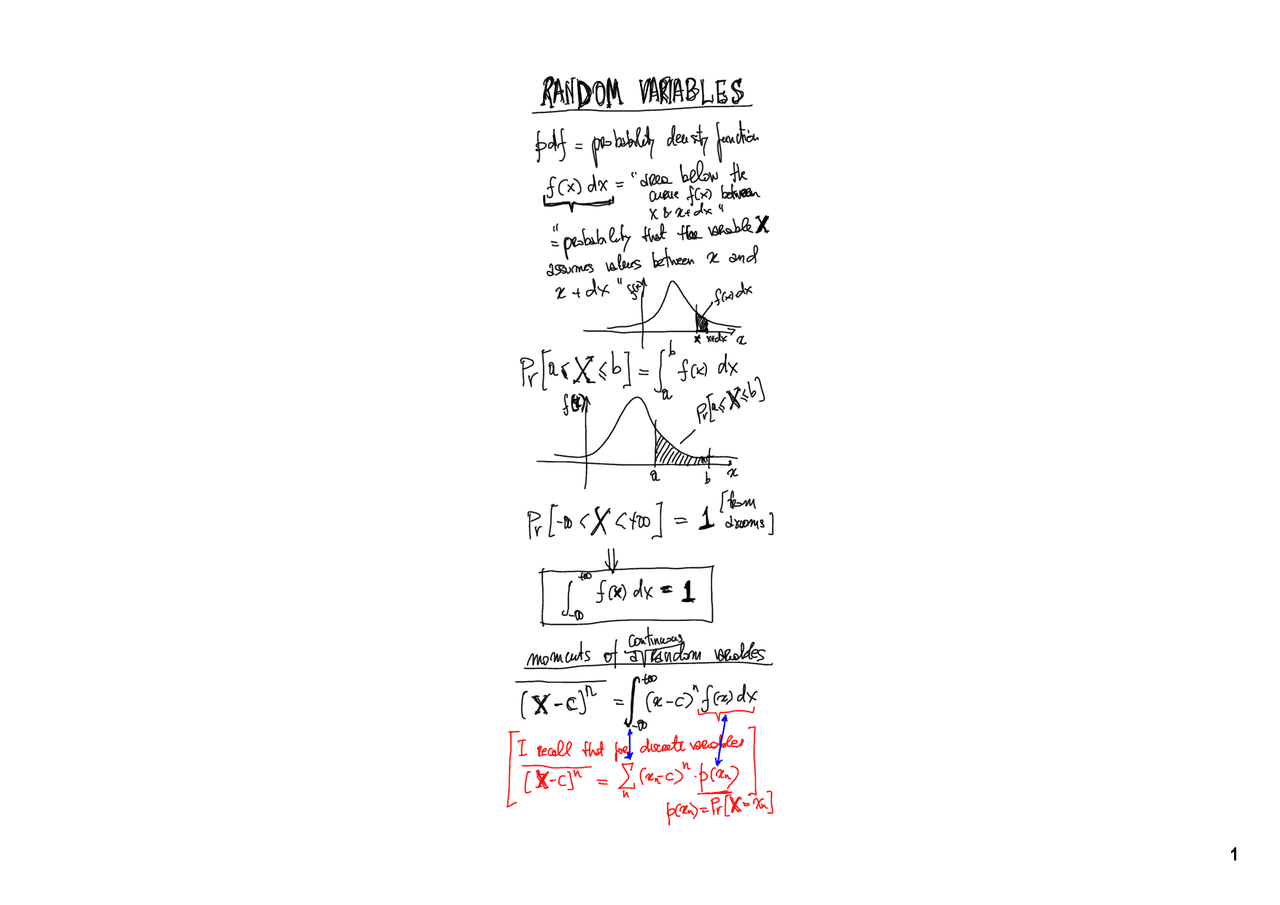 RANDOM VARIABLES
pdf = probability density function
f(x) dx = "area below the
curve f(x) between
x & x+dx"
= "probability that the variable X
assumes values between x and
x + dx"
f(x)
f(x) dx
x x+dx x
Pr[a ≤ X ≤ b] = ∫_a^b f(x) dx
f(x)
Pr[a ≤ X ≤ b]
a b x
Pr[-∞ < X < +∞] = 1 [from
axioms]
⇓
∫_{-∞}^{+∞} f(x) dx = 1
continuous
moments of a random variables
\overline{[X - c]^n} = ∫_{-∞}^{+∞} (x-c)^n f(x) dx
[I recall that for discrete variables
\overline{[X-c]^n} = ∑_n (x_n-c)^n · p(x_n)]
p(x_n) = Pr[X = x_n]
1